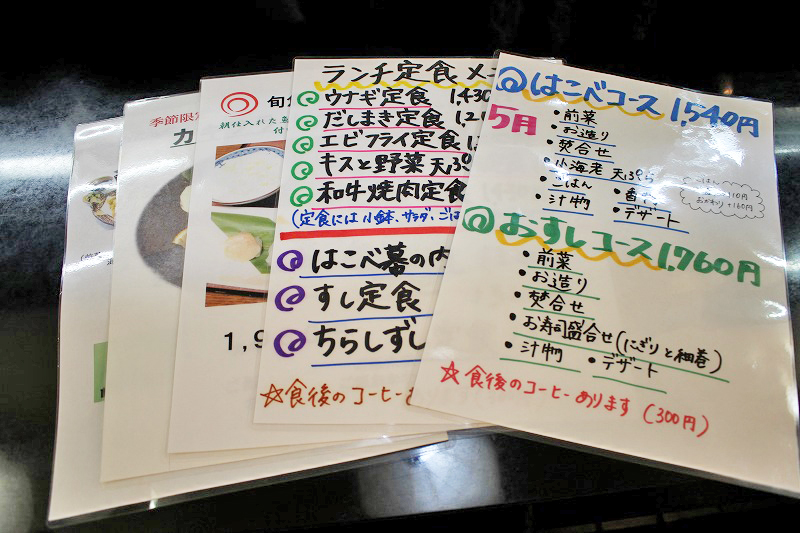 季節限定
カ
旬
朝仕入れた
付
1,9
ランチ定食 メニ
ウナギ定食 1,430
だしまき定食 1,21
エビフライ定食 1,
キスと野菜天ぷら
和牛焼肉定食
(定食には小鉢、サラダ、ごは
はこべ幕の内
すし定食
ちらしずし
☆食後のコーヒーあ
はこべコース 1,540円
5月
・前菜
・お造り
・焚合せ
・小海老天ぷら
・ごはん ・香物
・汁物 ・デザート
ごはん
おかわり+160円
おすしコース 1,760円
・前菜
・お造り
・焚合せ
・お寿司盛合せ(にぎりと細巻)
・汁物 ・デザート
☆食後のコーヒーあります(300円)